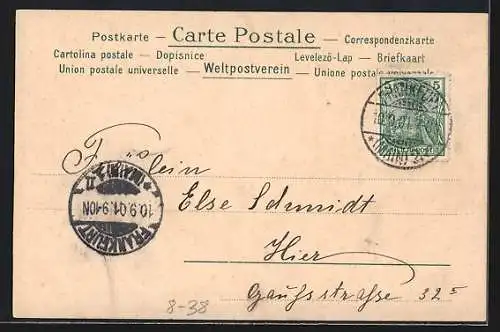 Postkarte — Carte Postale — Correspondenzkarte
Cartolina postale — Dopisnice Levelező-Lap — Briefkaart
Union postale universelle — Weltpostverein — Unione postale universale
5
FRANKFURT
(MAIN)
Fräulein
FRANKFURT
10.9.01.9-10N
(MAIN) 1
Else Schmidt
Hier
Gaußstraße 32 I
8-38